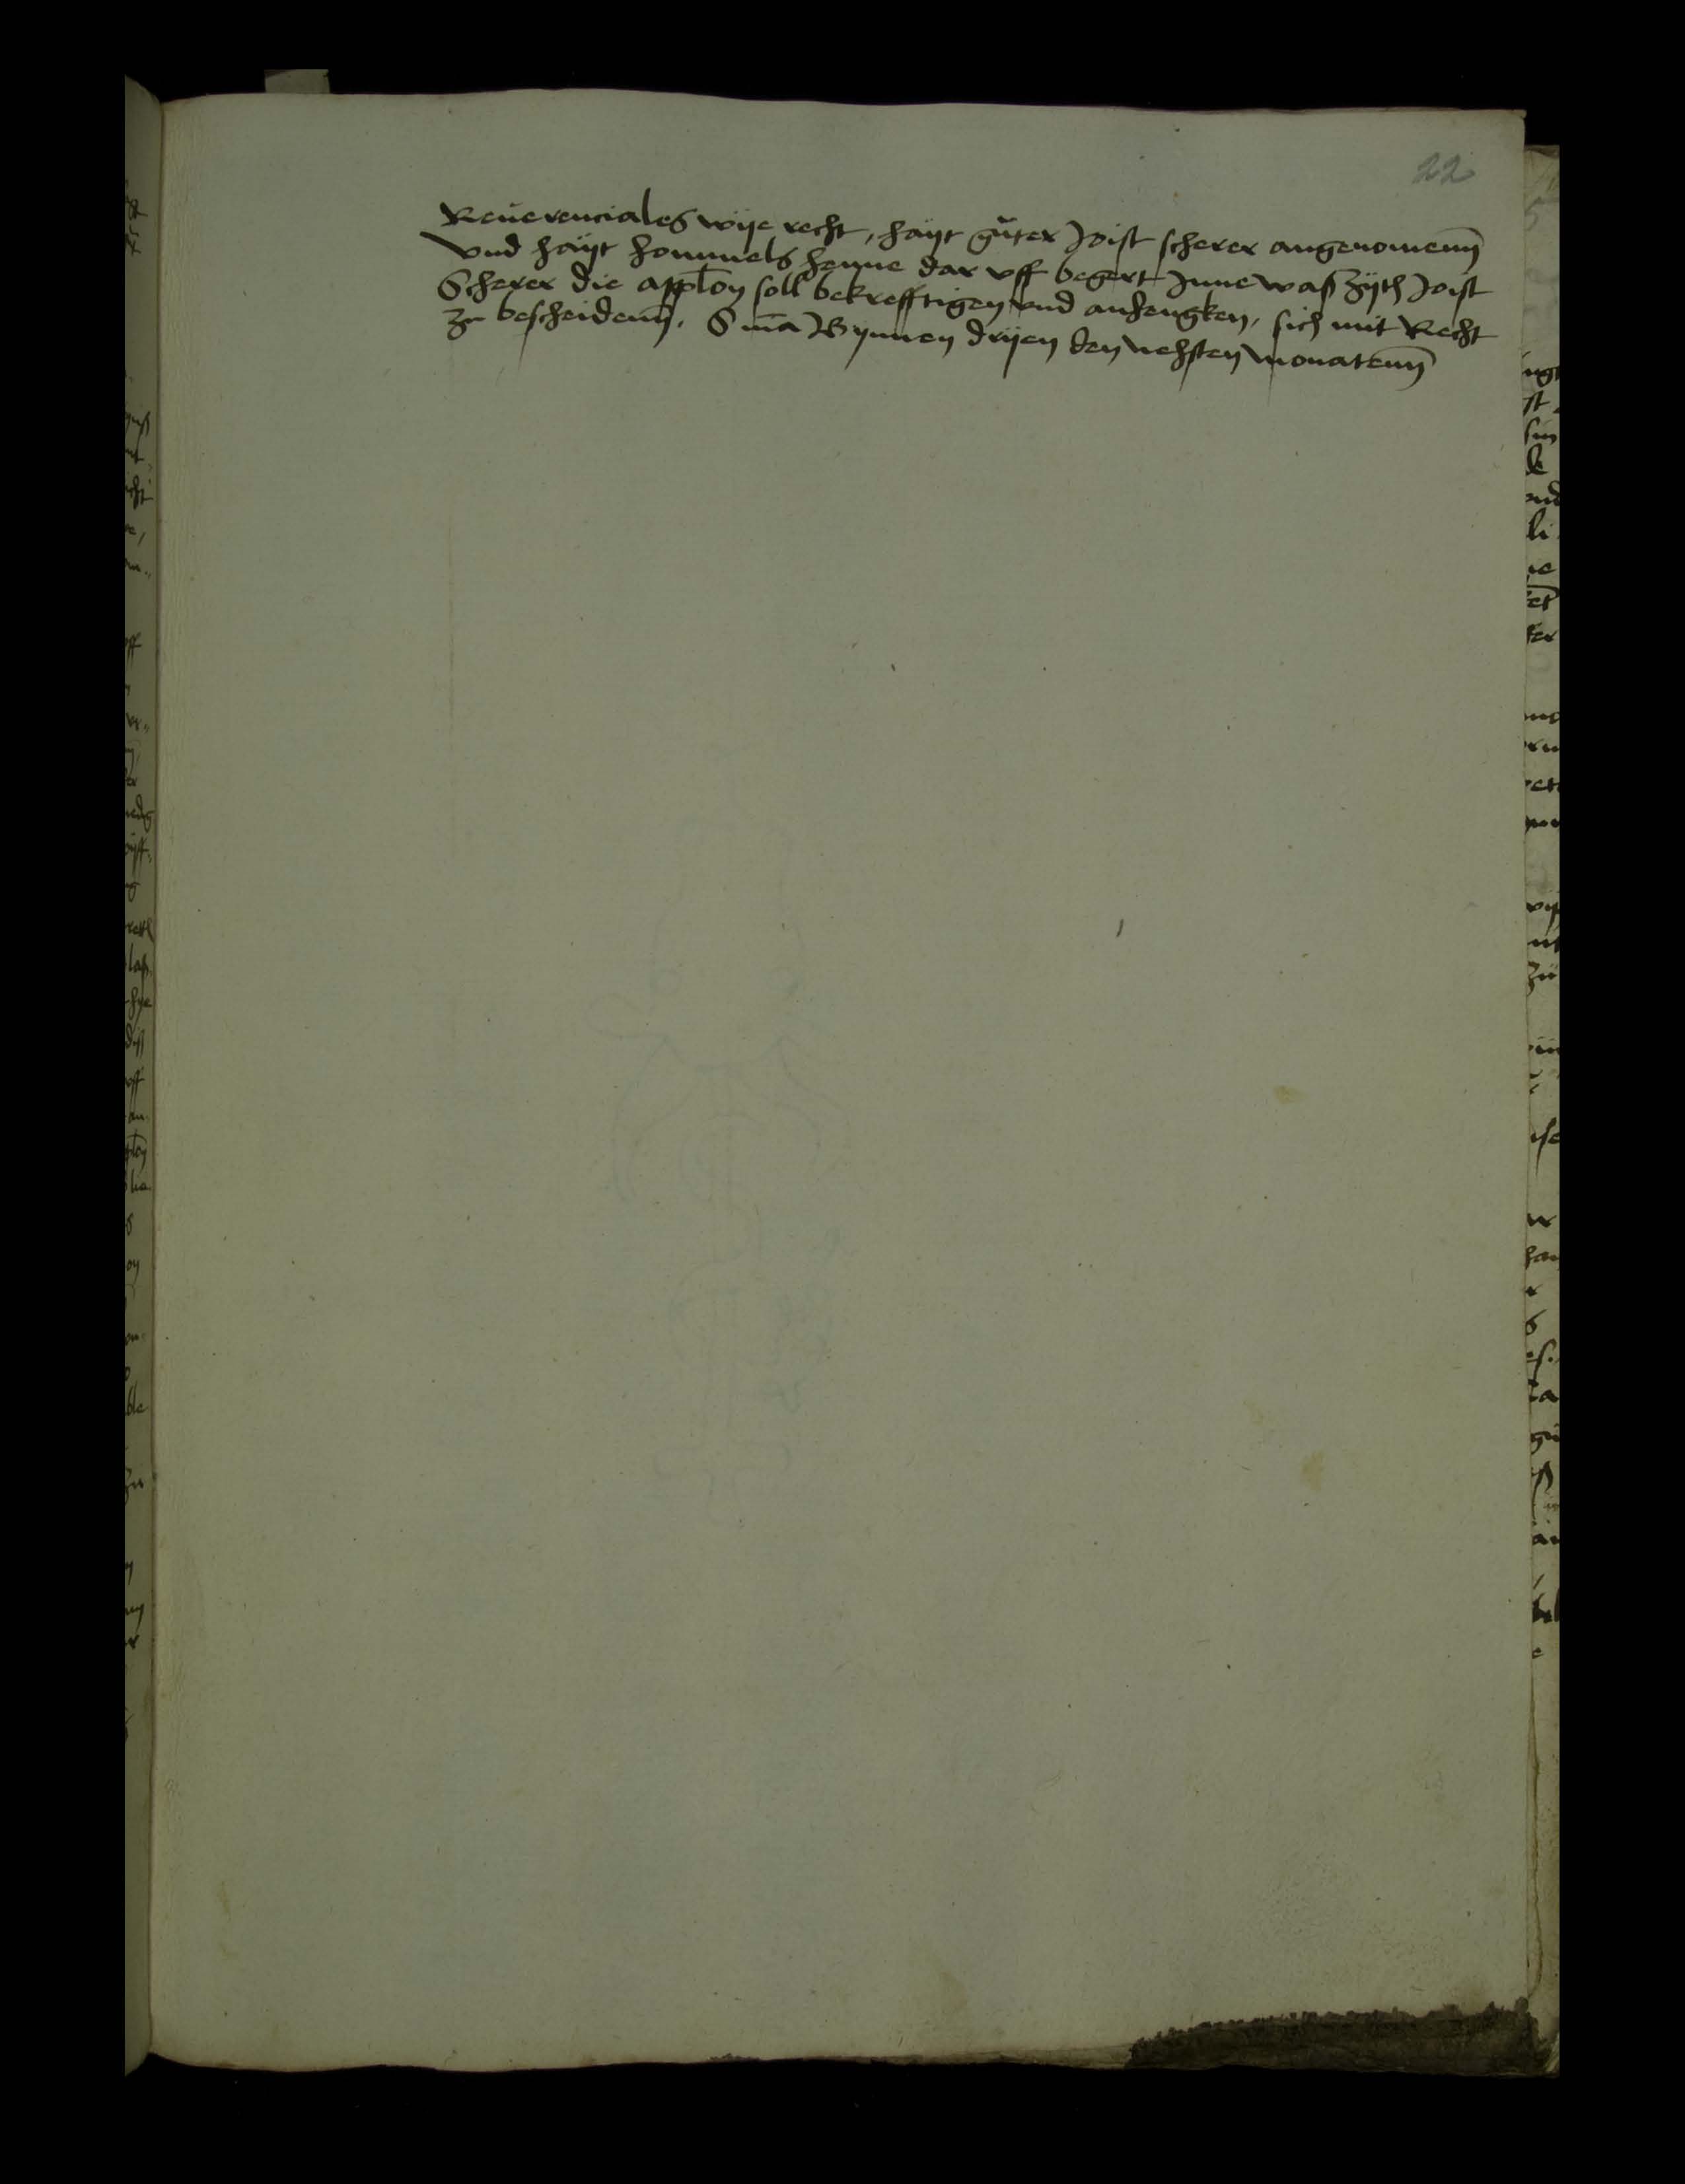 22
Reuerenciales wÿe recht, haÿt gůter Joist scherer angenomenn̄
vnd haÿt hommels henne dar vff begert Jnne was zÿth Joist
Scherer die applōn soll bekrefftigen vnd anhengken, sich mit Recht
zu bescheidenn̄. S m̄a Bynnen drÿen den nehsten monatenn̄